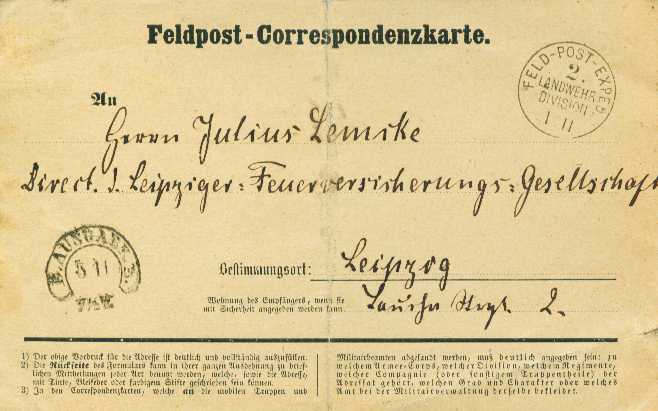 Feldpost-Correspondenzkarte.
FELD-POST-EXPED
2.
LANDWEHR
DIVISION
1 11
An
Herrn Julius Lemcke
Direct. d. Leipziger-Feuerversicherungs-Gesellschaft
AUSGABE
5 11
Bestimmungsort: Leipzog
Wohnung des Empfängers, wenn sie
mit Sicherheit angegeben werden kann.
2.
1) Der obige Vordruck für die Adresse ist deutlich und vollständig auszufüllen.
2) Die Rückseite des Formulars kann in ihrer ganzen Ausdehnung zu brief-
lichen Mittheilungen jeder Art benutzt werden, welche, sowie die Adresse,
mit Tinte, Bleifeder oder farbigem Stifte geschrieben sein können.
3) In den Correspondenzkarten, welche an die mobilen Truppen und
Militairbeamten abgesandt werden, muß deutlich angegeben sein: zu
welchem Armee-Corps, welcher Division, welchem Regimente,
welcher Compagnie (oder sonstigem Truppentheile) der
Adressat gehört, welchen Grad und Charakter oder welches
Amt bei der Militairverwaltung derselbe bekleidet.